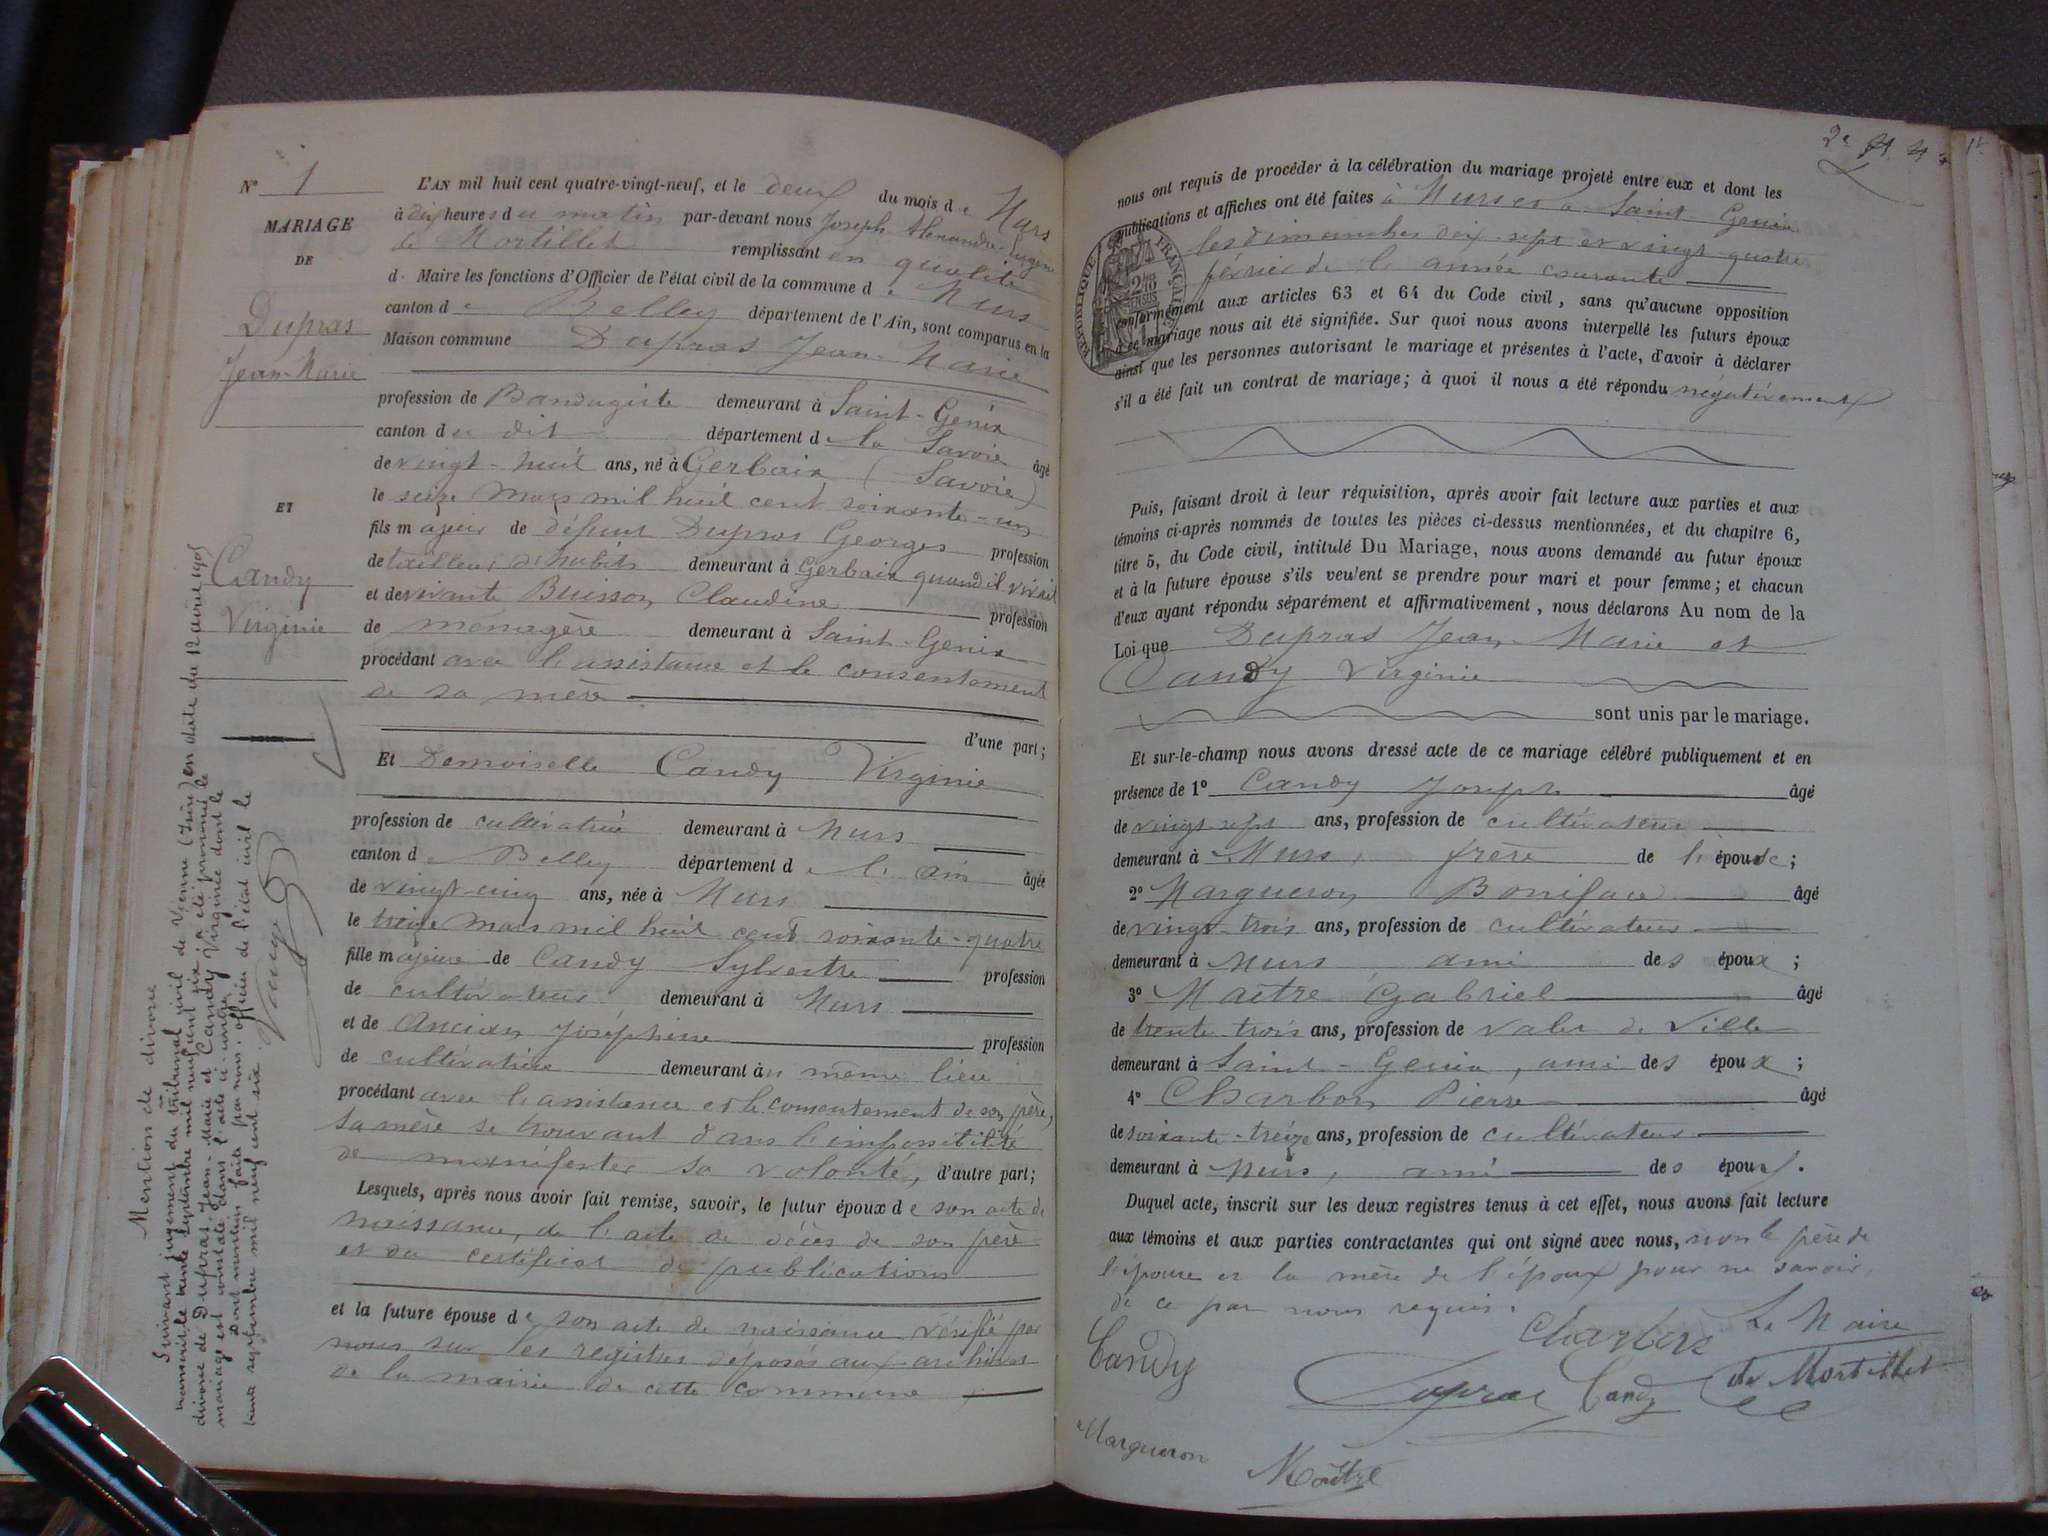 N° 1
MARIAGE
DE
Dupras
Jean-Marie
ET
Candy
Virginie
Mention de divorce
Suivant jugement du tribunal civil de Vienne (Isère) en date du 12 avril 1905
divorce de Dupras Jean-Marie et Candy Virginie dont le
mariage est constaté dans l'acte ci-contre
Dont mention faite par nous, officier de l'état civil le
trente septembre mil neuf cent six.
L'AN mil huit cent quatre-vingt-neuf, et le deux du mois de Mars
à dix heures du matin par-devant nous Joseph Alexandre Eugène
de Mortillet remplissant en qualité
d. Maire les fonctions d'Officier de l'état civil de la commune de Murs
canton de Belley département de l'Ain, sont comparus en la
Maison commune Dupras Jean-Marie
profession de Bandagiste demeurant à Saint-Genix
canton du dit département de la Savoie âgé
de vingt-huit ans, né à Gerbaix (Savoie)
le seize Mars mil huit cent soixante-un
fils majeur de défunt Dupras Georges profession
de tailleur d'habits demeurant à Gerbaix quand il vivait
et de vivante Buisson Claudine profession
de ménagère demeurant à Saint-Genix
procédant avec l'assistance et le consentement
de sa mère
d'une part;
Et Demoiselle Candy Virginie
profession de cultivatrice demeurant à Murs
canton de Belley département de l'ain âgée
de vingt-cinq ans, née à Murs
le treize Mars mil huit cent soixante-quatre
fille majeure de Candy Sylvestre profession
de cultivateur demeurant à Murs
et de Ancian Joséphine profession
de cultivatrice demeurant au même lieu
procédant avec l'assistance et le consentement de son père,
sa mère se trouvant dans l'impossibilité
de manifester sa volonté, d'autre part;
Lesquels, après nous avoir fait remise, savoir, le futur époux de son acte de
naissance, de l'acte de décès de son père
et du certificat de publications
et la future épouse de son acte de naissance vérifié par
nous sur les registres déposés aux archives
de la mairie de cette commune
nous ont requis de procéder à la célébration du mariage projeté entre eux et dont les
publications et affiches ont été faites à Murs et à Saint-Genix
les dimanches dix-sept et vingt-quatre
février de l'année courante
conformément aux articles 63 et 64 du Code civil, sans qu'aucune opposition
à ce mariage nous ait été signifiée. Sur quoi nous avons interpellé les futurs époux
ainsi que les personnes autorisant le mariage et présentes à l'acte, d'avoir à déclarer
s'il a été fait un contrat de mariage; à quoi il nous a été répondu négativement
Puis, faisant droit à leur réquisition, après avoir fait lecture aux parties et aux
témoins ci-après nommés de toutes les pièces ci-dessus mentionnées, et du chapitre 6,
titre 5, du Code civil, intitulé Du Mariage, nous avons demandé au futur époux
et à la future épouse s'ils veulent se prendre pour mari et pour femme; et chacun
d'eux ayant répondu séparément et affirmativement, nous déclarons Au nom de la
Loi que Dupras Jean-Marie et
Candy Virginie
sont unis par le mariage.
Et sur-le-champ nous avons dressé acte de ce mariage célébré publiquement et en
présence de 1° Candy Joseph âgé
de vingt-sept ans, profession de cultivateur
demeurant à Murs, frère de l'épouse;
2° Margueron Boniface âgé
de vingt-trois ans, profession de cultivateur
demeurant à Murs ami des époux;
3° Maître Gabriel âgé
de trente trois ans, profession de valet de ville
demeurant à Saint-Genix, ami des époux;
4° Charbon Pierre âgé
de soixante-treize ans, profession de cultivateur
demeurant à Murs, ami des époux.
Duquel acte, inscrit sur les deux registres tenus à cet effet, nous avons fait lecture
aux témoins et aux parties contractantes qui ont signé avec nous, non le père de
l'épouse et la mère de l'époux pour ne savoir
de ce par nous requis.
Le Maire
Candy Dupras Candy de Mortillet
Margueron Maître